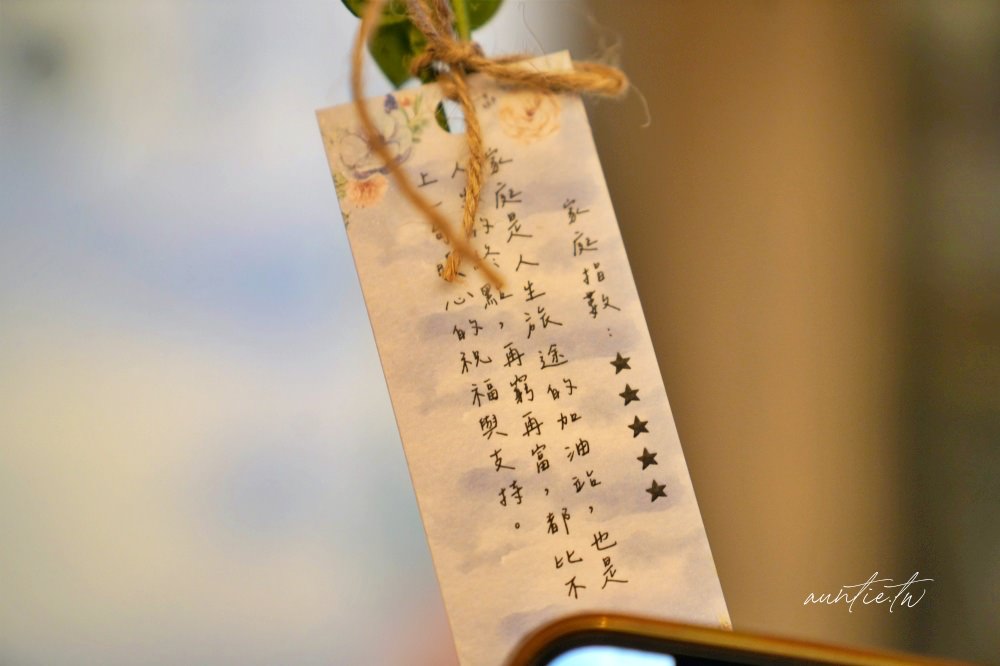 家庭指數：★★★★★
家庭是人生旅途的加油站，也是
人生的終點，再窮再富，都比不
上一句暖心的祝福與支持。
auntie.tw